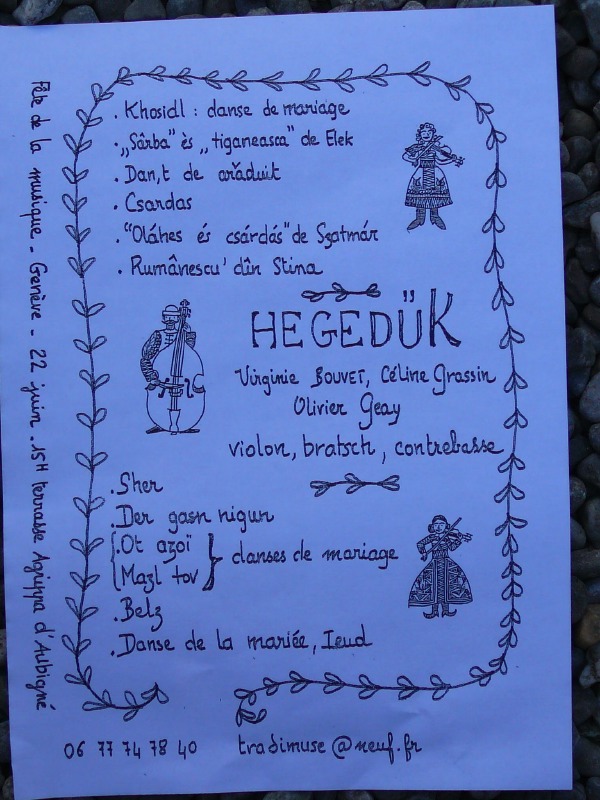 Fête de la musique - Genève - 22 juin . 15H terrasse Agrippa d'Aubigné
. Khosidl : danse de mariage
. „Sârba" ès „tiganeasca" de Elek
. Dan,t de arăduit
. Csardas
. "Oláhes és csárdás" de Szatmár
. Rumânescu' dîn Stina
HEGEDÜK
Virginie BOUVET, Céline Grassin
Olivier Geay
violon, bratsch, contrebasse
. Sher
. Der gasn nigun
{. Ot azoï
Mazl tov } danses de mariage
. Belz
. Danse de la mariée, Ieud
06 77 74 78 40 tradimuse@neuf.fr